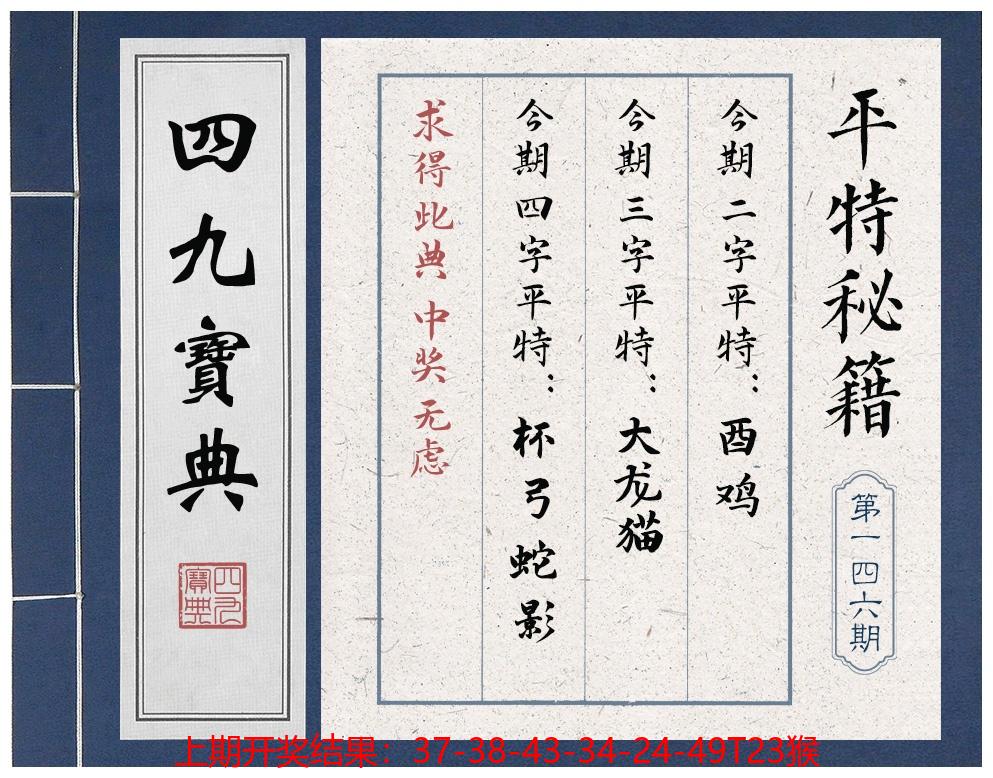 平特秘籍
第一四六期
今期二字平特：酉鸡
今期三字平特：大龙猫
今期四字平特：杯弓蛇影
求得此典 中奖无虑
四九寶典
四九寶典
上期开奖结果：37-38-43-34-24-49T23猴